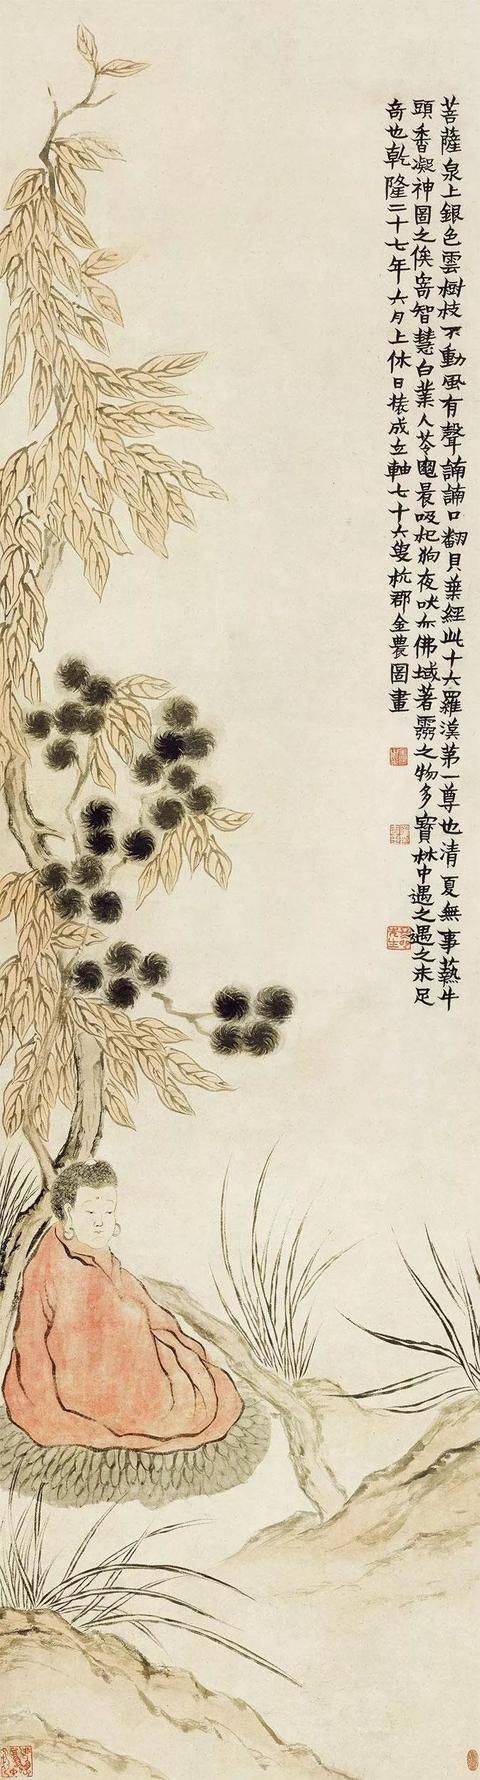 菩薩泉上銀色雲樹枝不動風有聲誦誦口翻貝葉經此十六羅漢第一尊也清夏無事爇牛
頭香凝神圖之俟寄智慧白業人苓龜晨吸杞狗夜吠亦佛域著靈之物多寶林中遇之遇之未足
奇也乾隆二十七年六月上休日裝成立軸七十六叟杭郡金農圖畫